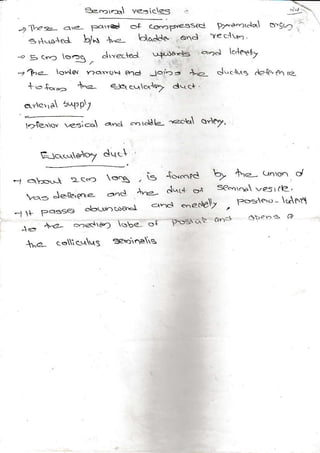 Seminal vesicles :
→ These are paired of compressed pyramidal organ
situated b/w the bladder and rectum.
→ 5 cm long, directed upwards and laterly
→ The lower narrow end joins the ductus deference
to form the Ejaculatory duct.
arterial supply
inferior vesical and middle rectal artery.
Ejaculatory duct:
→ about 2cm long, is formed by the union of
vas deference and the duct of seminal vesicle.
→ It passes downward and medely, postero-laterly
to the median lobe of prostate and opens
the colliculus seminalis